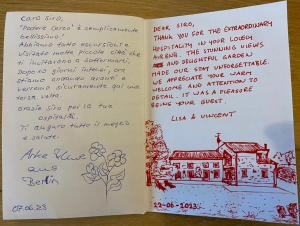 Caro Siro,
"Podere Cerco" è semplicemente
bellissimo!
Abbiamo fatto escursioni e
visitato molte piccole città che
ti invitano a soffermarti,
dopo 10 giorni interi, ora
stiamo andando avanti e
verremo sicuramente qui una
terza volta.
Grazie Siro per la tua
ospitalità.
Ti auguro tutto il meglio
e salute.
aus
Berlin
07.06.23
DEAR, SIRO,
THANK YOU FOR THE EXTRAORDINARY
HOSPITALITY IN YOUR LOVELY
AIRBNB. THE STUNNING VIEWS
AND DELIGHTFUL GARDEN
MADE OUR STAY UNFORGETTABLE.
WE APPRECIATE YOUR WARM
WELCOME AND ATTENTION TO
DETAIL. IT WAS A PLEASURE
BEING YOUR GUEST.
LISA & VINCENT
22-06-2023